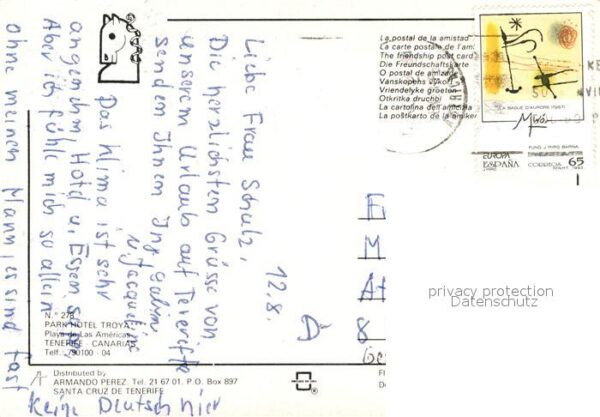 12.8.
Liebe Frau Schulz,
Die herzlichsten Grüsse von
unserem Urlaub auf Teneriffa
senden Ihnen
u. Jacqueline
Das Klima ist sehr
angenehm, Hotel u. Essen
Aber ich fühle mich so allein
ohne meinen Mann, es sind fast
keine Deutsch hier
La postal de la amistad
La carte postale de l'ami
The friendship post card
Die Freundschaftskarte
O postal de amizade
Vanskopens
Vriendelyke groeten
Otkritka druchbi
La cartolina dell'amicizia
La
LA BAGUE D'AURORE (1957)
Miró
FUND. J. MIRÓ. BARNA.
EUROPA
ESPAÑA
CORREOS
65
E
M
A
8
D
privacy protection
Datenschutz
N.º 278
PARK HOTEL TROYA
Playa de Las Américas
TENERIFE - CANARIAS
Telf. 790100 - 04
Distributed by
ARMANDO PEREZ. Tel. 21 67 01. P.O. Box 897
SANTA CRUZ DE TENERIFE